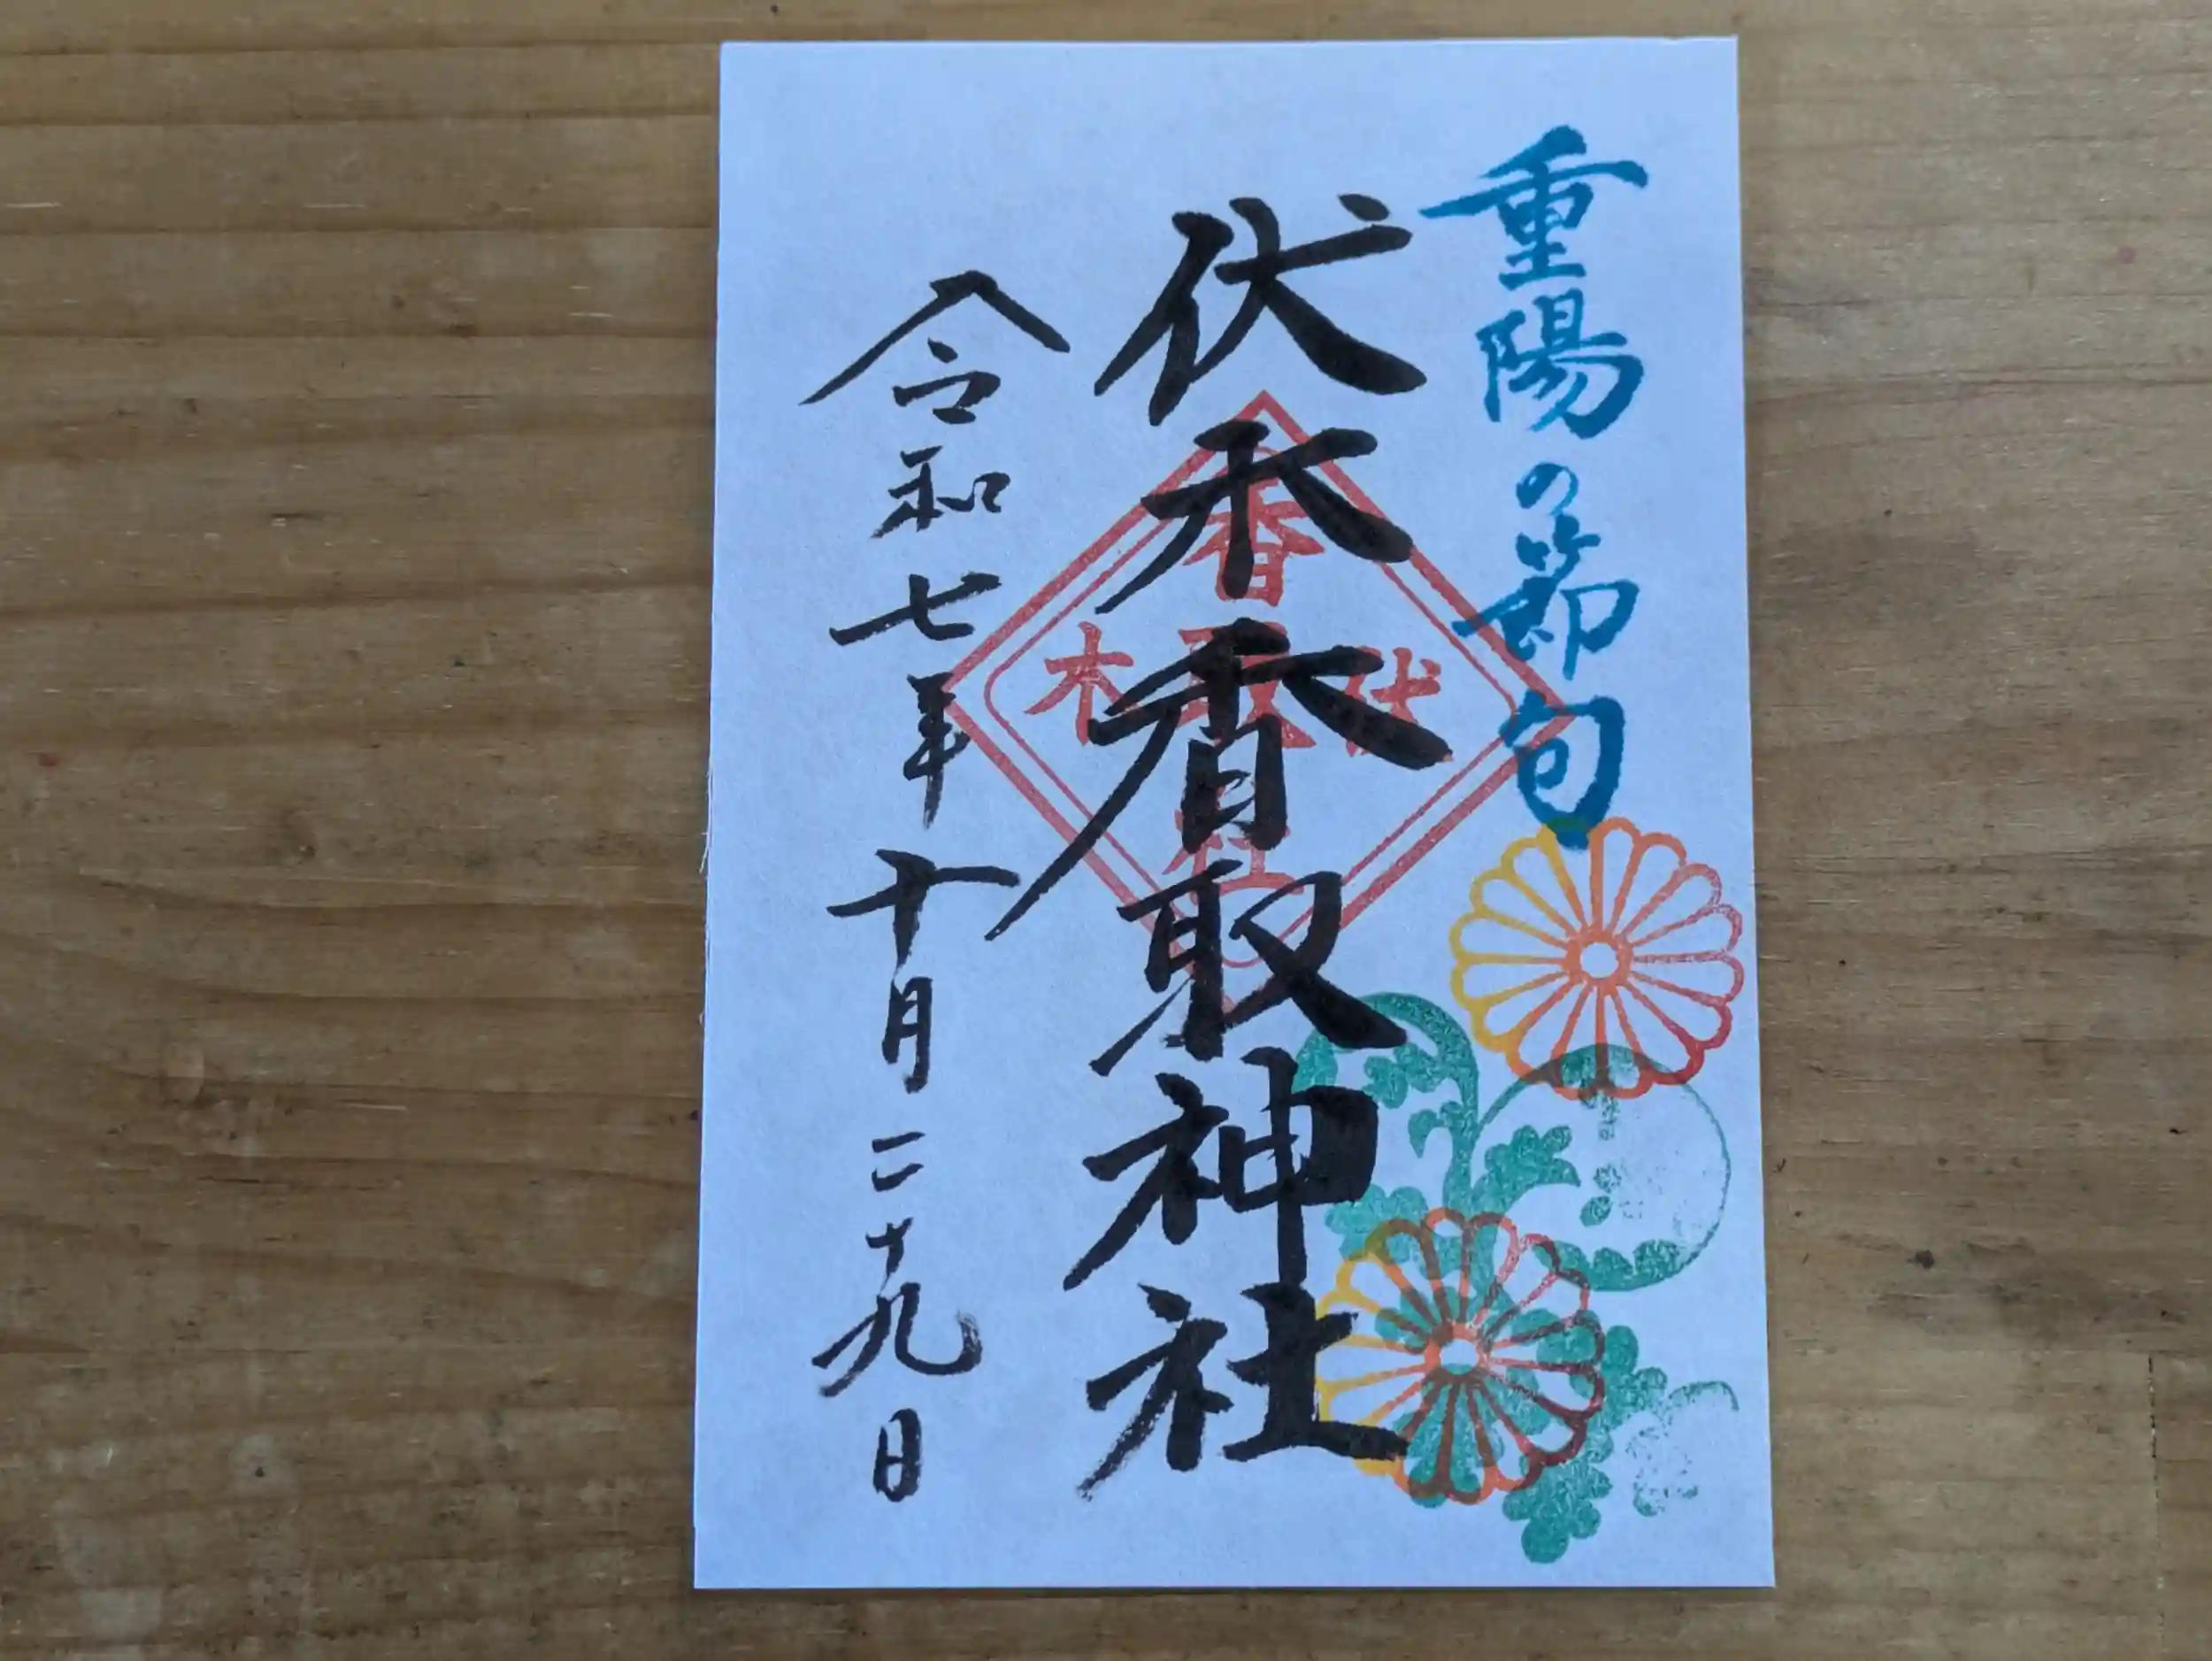 重陽の節句
伏木香取神社
令和七年十月二十九日
伏
香取社
木